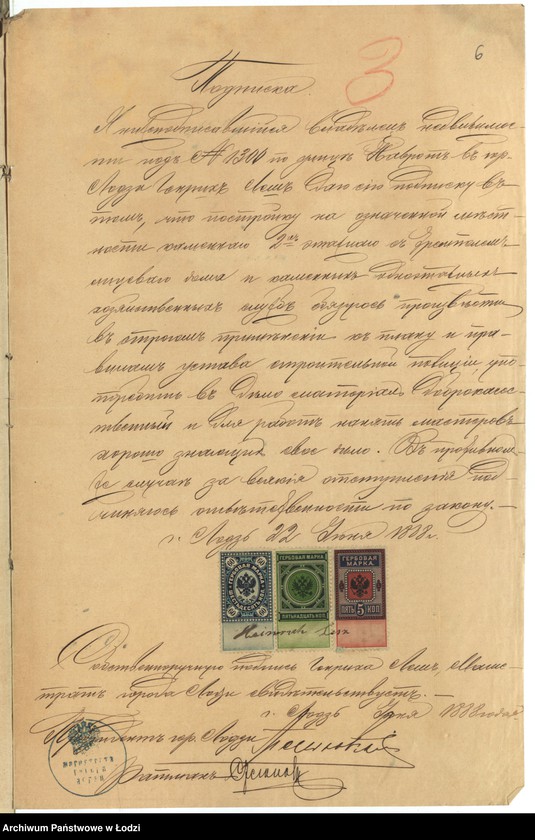 6
3
Подписка.
Я нижеподписавшійся владѣлецъ недвижимос-
ти подъ № 1300 по улицѣ Навротъ въ гор.
Лодзи Генрихъ даю сію подписку въ
томъ, что постройку на означенной мѣст-
ности каменнаго 2хъ этажнаго съ
дома и каменныхъ одноэтажныхъ
хозяйственныхъ службъ обязуюсь произвести
въ строгомъ примѣненіи къ плану и пра-
виламъ устава строительной полиціи упо-
требить въ дѣло матеріалъ доброкачес-
твенный и для работъ нанять мастеровъ
хорошо знающихъ свое дѣло. Въ противном-
же случаѣ за всякія отступленія под-
чиняюсь отвѣтственности по закону.—
г. Лодзь 22 Іюня 1888 г.
60 ГЕРБОВАЯ МАРКА 60
60 60
ГЕРБОВАЯ МАРКА
ПЯТЬНАДЦАТЬ КОП.
ГЕРБОВАЯ МАРКА
ПЯТЬ 5 КОП
Heinrich
Собственноручную подпись Генриха Маги-
стратъ города Лодзи свидѣтельствуетъ.—
г. Лодзь Іюня 1888 года
Президентъ гор. Лодзи
Ратманъ
Archiwum Państwowe w Łodzi